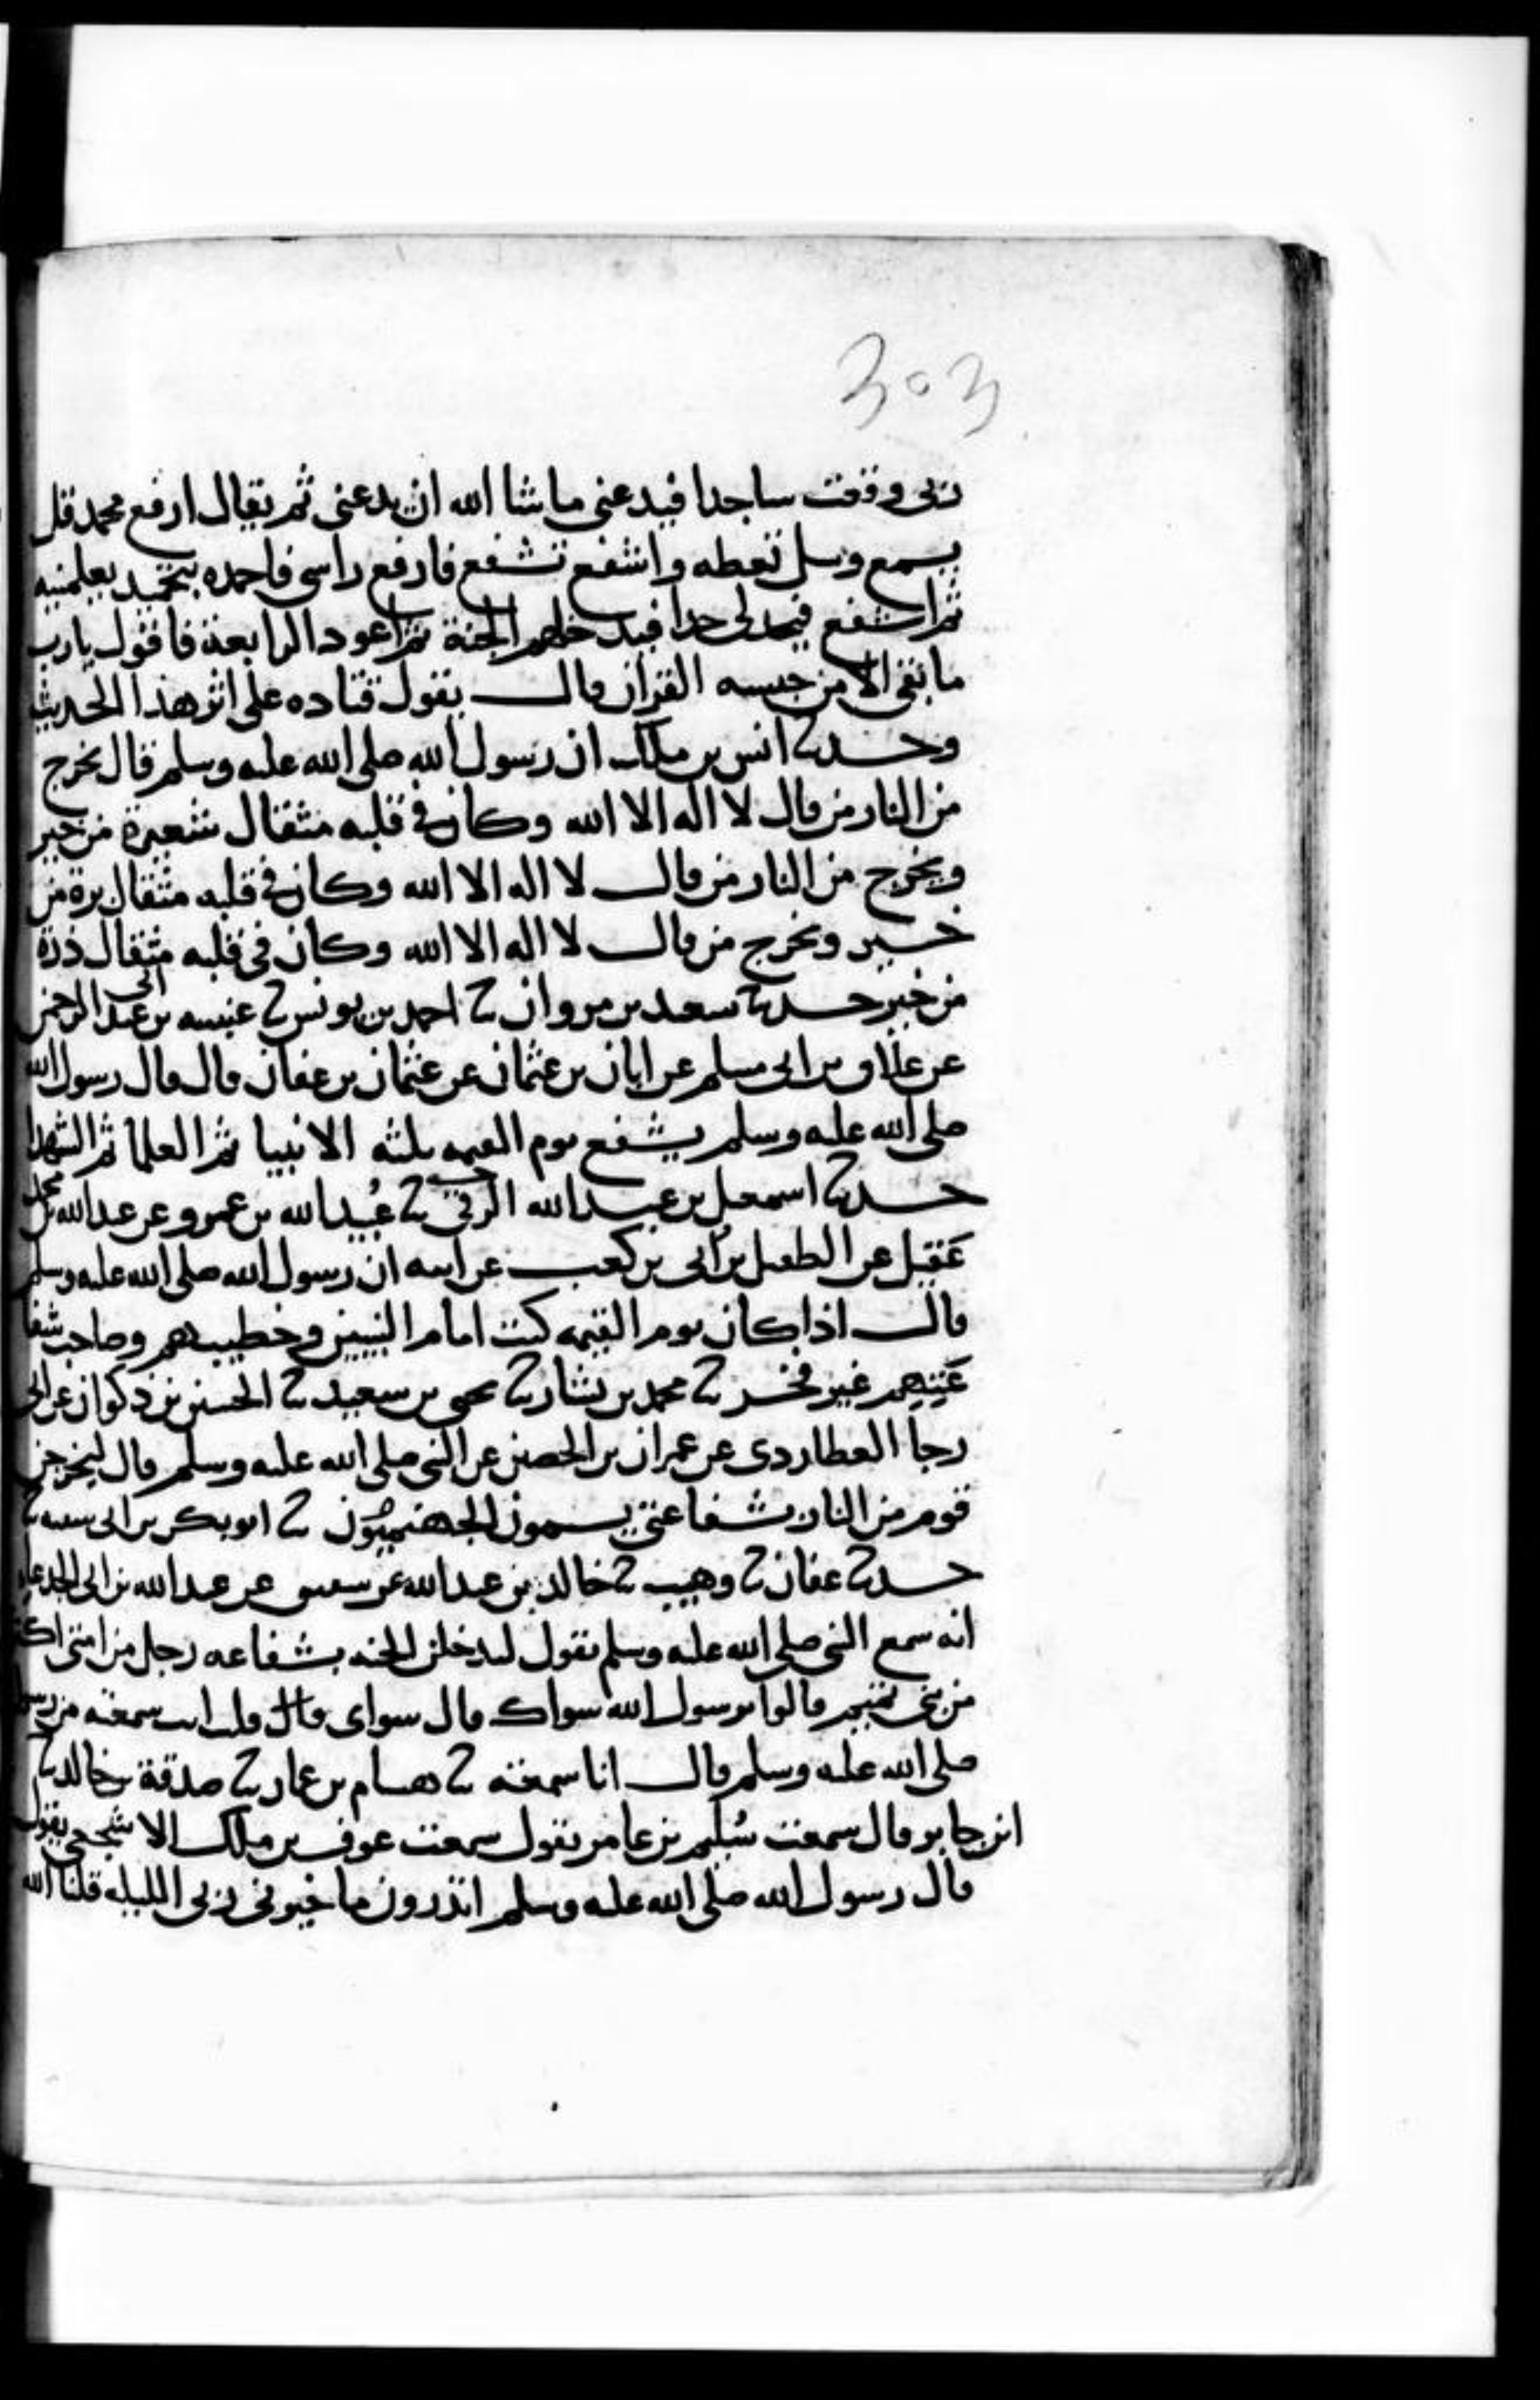 303
ربى وقعت ساجدا فيدعنى ماشا الله ان يدعنى ثم يقال ارفع محمد قل
يسمع وسل تعطه واشفع تشفع فارفع راسى فاحمده بتحميد يعلمنيه
ثم اشفع فيحد لى حدا فيدخلهم الجنة ثم اعود الرابعة فاقول يارب
ما بقى الا من حبسه القران قال يقول قتاده على اثر هذا الحديث
وحدثنا انس بن ملك ان رسول الله صلى الله عليه وسلم قال يخرج
من النار من قال لا اله الا الله وكان فى قلبه مثقال شعيرة من خير
ويخرج من النار من قال لا اله الا الله وكان فى قلبه مثقال برة من
خير ويخرج من قال لا اله الا الله وكان فى قلبه مثقال ذرة
من خير حدثنا سعيد بن مروان ثنا احمد بن يونس ثنا عنبسه بن عبد الرحمن
عن علاق بن ابى مسلم عن ابان بن عثمان عن عثمان بن عفان قال قال رسول الله
صلى الله عليه وسلم يشفع يوم القيمه ثلثه الانبيا ثم العلما ثم الشهدا
حدثنا اسمعيل بن عبد الله الرقى ثنا عُبيد الله بن عمرو عن عبد الله بن محمد
عَقيل عن الطفيل بن أبى بن كعب عن ابيه ان رسول الله صلى الله عليه وسلم
قال اذا كان يوم القيمه كنت امام النبيين وخطيبهم وصاحب شفا
عَتِهِم غير فخر ثنا محمد بن بشار ثنا يحيى بن سعيد ثنا الحسين بن ذكوان عن ابى
رجا العطاردى عن عمران بن الحصين عن النبى صلى الله عليه وسلم قال ليخرجن
قوم من النار بشفاعتى يسمون الجهنميون ثنا ابو بكر بن ابى شيبه ثنا
حدثنا عفان ثنا وهيب ثنا خالد بن عبد الله عن شقيق عن عبد الله بن ابى الجدعا
انه سمع النبى صلى الله عليه وسلم يقول ليدخلن الجنه بشفاعه رجل من امتى اكثر
من بنى تميم قالوا يرسول الله سواك قال سواى قال قلت انت سمعته من رسول
صلى الله عليه وسلم قال انا سمعته ثنا هشام بن عمار ثنا صدقة بن خالد ثنا
ابن جابر قال سمعت سُليم بن عامر يقول سمعت عوف بن ملك الاشجعى يقول
قال رسول الله صلى الله عليه وسلم اتدرون ما خيرنى ربى الليله قلنا الله